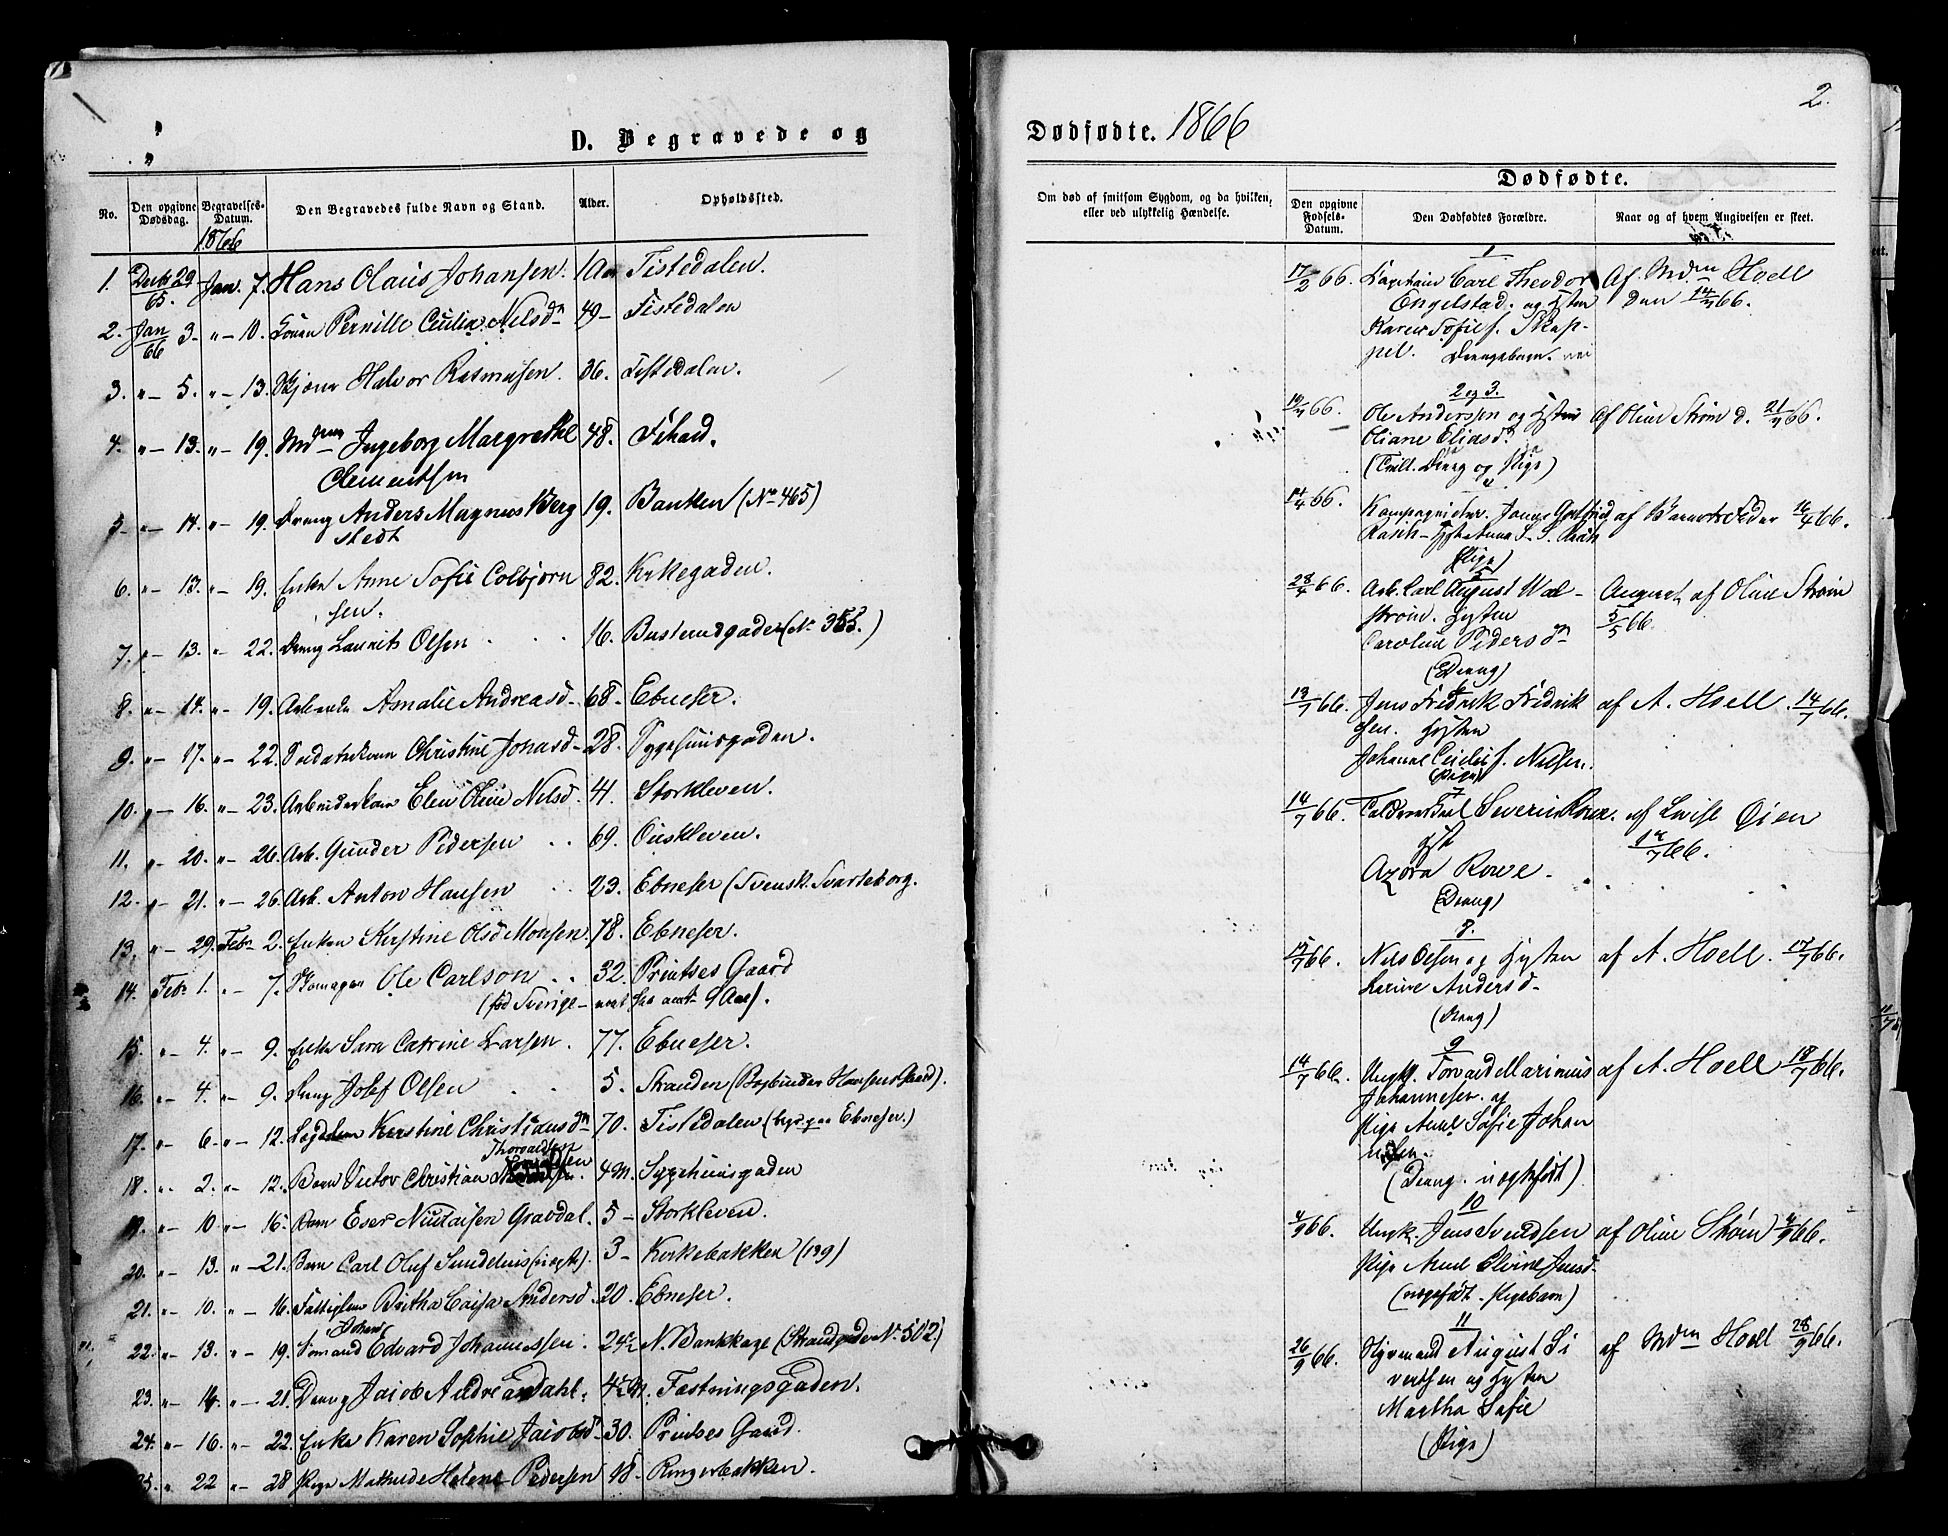 D. Begravede og
No.
Den opgivne Dødsdag.
Begravelses-Datum.
Den Begravedes fulde Navn og Stand.
Alder.
Opholdssted.
1866
1. Decbr 29/65. Jan. 7. Hans Olaus Johansen. 1 Aar Tistedalen.
2. Jan/66 3. " 10. Konen Pernille Cecilia Nelsdn 49 - Tistedalen
3. " 5. " 13. Halvor Rasmusen. 36. Tistedalen.
4. " 13. " 19. Mdmm Ingeborg Margrethe 48.
Clementsen
5. " 14. " 19. Dreng Anders Magnus Berg 19. Banken (No 465)
stedt
6. " 13. " 19. Enke Anne Sofie Colbjørn 82. Kirkegaden.
sen.
7. " 13. " 22. Dreng Laurits Olsen 16. (No 353.)
8. " 14. " 19. Amalie Andreasd 68. Ebneser.
9. " 17. " 22. Christine Jonasd 28. Sygehuusgaden.
10. " 16. " 23. Arbeiderkone Elen Oline Nelsd. 41. Storkleven.
11. " 20. " 26. Arb. Gunder Pedersen 69. Oreskleven.
12. " 21. " 26. Arb. Anton Hansen 23. Ebneser (Svensk. Svarteborg.
13. " 29. Febr 2. Enken Kerstine Olsd Monsen. 78. Ebneser.
14. Febr 1. " 7. Skomager Ole Carlson 32. Printses Gaard
(fød Sverige - 9 Aar).
15. " 4. " 9. Enke Sara Catrine Larsen. 77. Ebneser.
16. " 4. " 9. Dreng Josef Olsen 5. Stranden (Bogbinder Hansens Gaard).
17. " 6. " 12. Kerstine Christiansdn 70. Tistedalen ( paa Ebneser.)
Thorvaldsen
18. " 2. " 12. Barn Victor Christian 4 M. Sygehuusgaden
19. " 10. " 16. Barn Eser Gravdal. 5 - Storkleven.
20. " 13. " 21. Barn Carl Oluf Sundelius (uægte). 3 - Kirkebakken (139)
21. " 10. " 16. Fattiglem Britha Caisa Andersd. 20. Ebneser.
Johan
22. " 13. " 19. Sømand Edvard Johannessen. 24½ N. Bankkage (Strandgaden No 502)
23. " 14. " 21. Dreng Jacob Andreas Dahl. 4½ M. Fæstningsgaden.
24. " 16. " 22. Enke Karen Sophie Jacobsd. 30. Printses Gaard.
25. " 22 " 28 Pige Mathilde Helene Pedersen 18. Ringerbakken.
Dødfødte. 1866
2.
Om død af smitsom Sygdom, og da hvilken, eller ved ulykkelig Hændelse.
Dødfødte.
Den opgivne Fødsels-Datum.
Den Dødfødtes Forældre.
Naar og af hvem Angivelsen er skeet.
1
17/2 66. Kaptain Carl Theodor Af Mdmn Hoell
Engelstad. og Hustru den 14/4 66.
Karen Sofie f. Skap-
pel. Drengebarn.
2 og 3.
19/4 66. Ole Anderssen og Hustru af Oline Strøm d. 21/4 66.
Oliane Eliasd.
(Tvill. Dreng og Pige)
14/4 66. Jonas Gotfried af Barnets Fader 16/4 66.
Rasch
(Pige)
5
28/4 66. Arb. Carl August Wal- Angivet af Oline Strøm
strøm. Hustru 5/5 66.
Caroline Pedersdn
(Dreng)
6
13/7 66. Jens Fredrik Fredrik af A. Hoell. 14/7 66.
sen. Hustru
Johanne Cecilie f. Nilsen.
(Pige)
7
14/7 66. Severin af Lovise Øien
Hust 14/7 66.
Azora Rowe.
(Dreng)
8.
15/7 66. Nels Olsen og Hustru af A. Hoell. 17/7 66.
Larine Andersd.
(Dreng)
9
14/7 66. Ungk. Torvald Marinius af A. Hoell 18/7 66.
Johannesen. og
Pige Anne Sofie Johan
nesen.
(Dreng. uægtefødt)
10
4/9 66. Ungk. Jens Svendsen af Oline Strøm 4/9 66.
Pige Anne Elvine Jensd.
(uægtefødt. Pigebarn)
11
26/9 66. August Si af Mdmn Hoell 28/9 66.
vertsen og Hustru
Martha Sofie
(Pige)